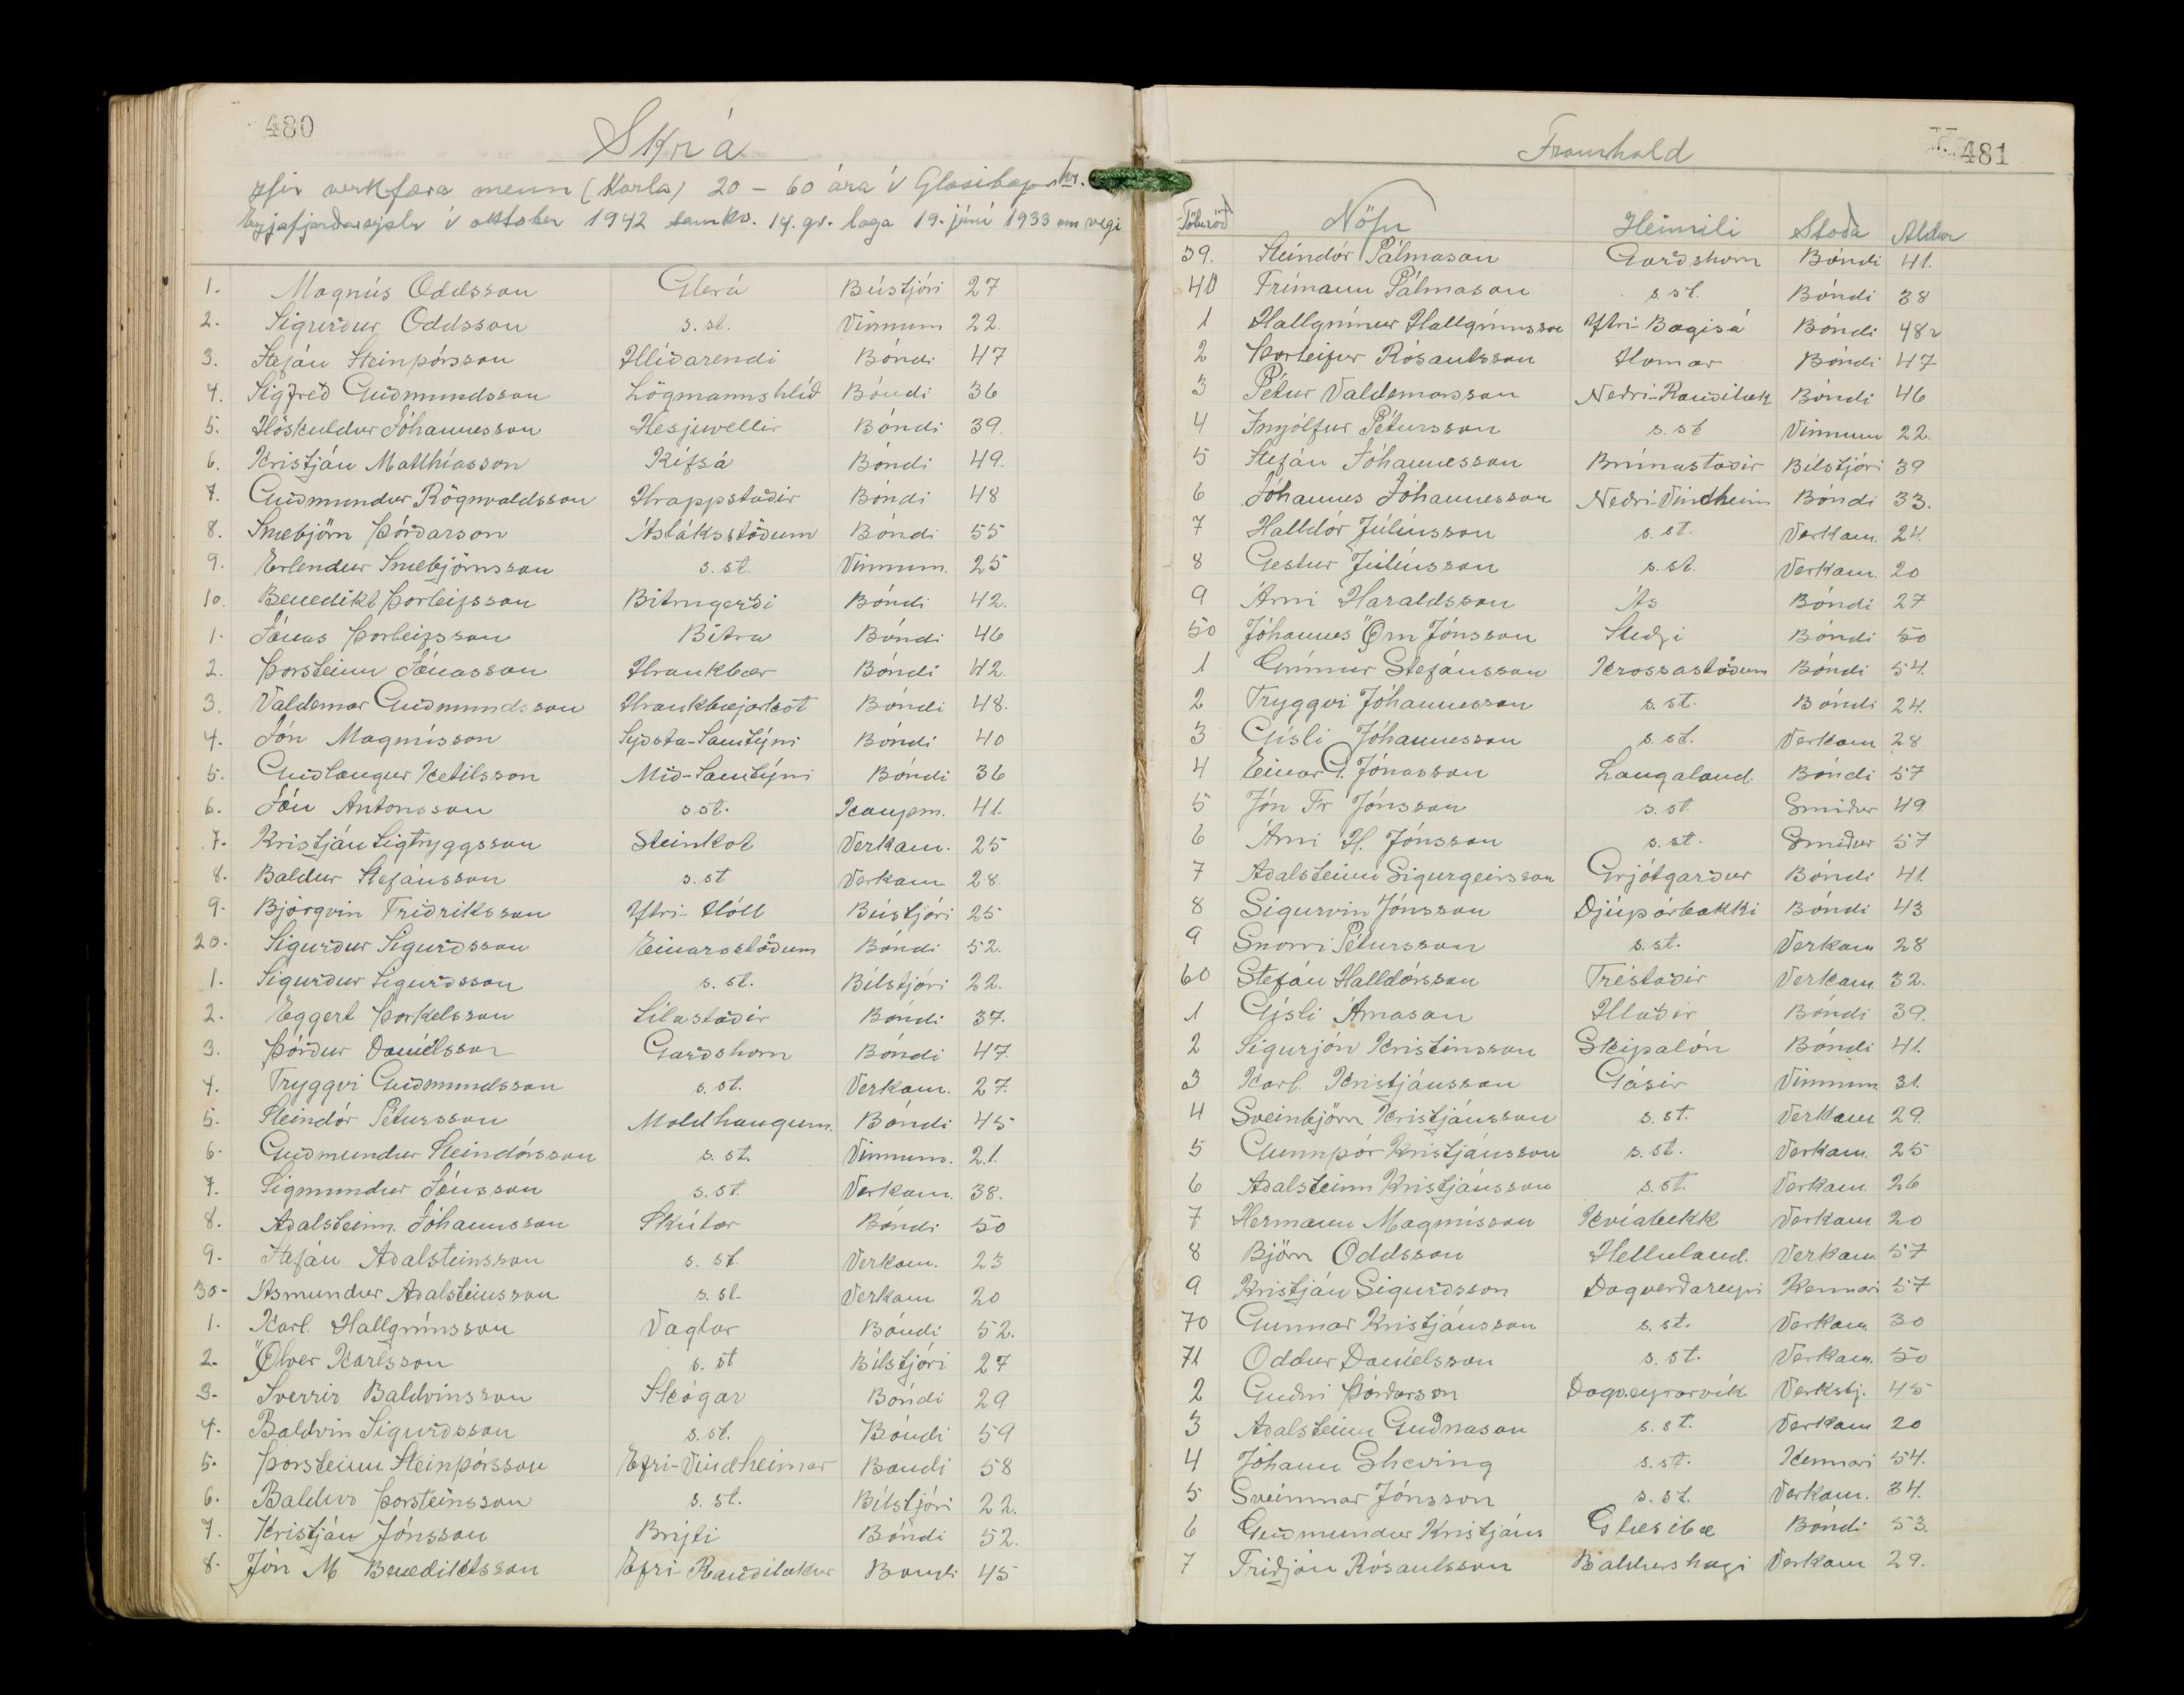 480
Skrá
yfir verkfæra menn (karla) 20 – 60 ára í Glæsibæjarhr.
Eyjafjarðarsýslu í október 1942 samkv. 14. gr. laga 19. júní 1933 um vegi
1. Magnús Oddsson Glerá Bústjóri 27
2. Sigurður Oddsson s. st. Vinnum 22
3. Stefán Steinþórsson Hlíðarendi Bóndi 47
4. Sigfreð Guðmundsson Lögmannshlíð Bóndi 36
5. Höskuldur Jóhannesson Hesjuvellir Bóndi 39.
6. Kristján Matthíasson Kífsá Bóndi 49.
7. Guðmundur Rögnvaldsson Hrappstaðir Bóndi 48
8. Snæbjörn Þórðarson Ásláksstöðum Bóndi 55
9. Erlendur Snæbjörnsson s. st. Vinnum. 25
10. Benedikt Þorleifsson Bitrugerði Bóndi 42.
1. Jónas Þorleifsson Bitra Bóndi 46
2. Þorsteinn Jónasson Hraukbær Bóndi 42.
3. Valdemar Guðmundsson Hraukbæjarkot Bóndi 48.
4. Jón Magnússon Syðsta-Samtýni Bóndi 40
5. Guðlaugur Ketilsson Mið-Samtýni Bóndi 36
6. Jón Antonsson s st. Kaupm. 41.
7. Kristján Sigtryggsson Steinkot Verkam. 25
8. Baldur Stefánsson s. st Verkam. 28.
9. Björgvin Friðriksson Ytri-Hóll Bústjóri 25
20. Sigurður Sigurðsson Einarsstöðum Bóndi 52.
1. Sigurður Sigurðsson s. st. Bílstjóri 22.
2. Eggert Þorkelsson Sílastaðir Bóndi 37.
3. Þórður Daníelsson Garðshorn Bóndi 47.
4. Tryggvi Guðmundsson s. st. Verkam. 27.
5. Steindór Pétursson Moldhaugum. Bóndi 45
6. Guðmundur Steindórsson s. st. Vinnum. 21.
7. Sigmundur Jónsson s. st. Verkam. 38.
8. Aðalsteinn Jóhannsson Skútar Bóndi 50
9. Stefán Aðalsteinsson s. st. Verkam. 23
30. Ásmundur Aðalsteinsson s. st. Verkam 20
1. Karl. Hallgrímsson Vaglar Bóndi 52.
2. Ölver Karlsson s. st Bílstjóri 27
3. Sverrir Baldvinsson Skógar Bóndi 29
4. Baldvin Sigurðsson s. st. Bóndi 59
5. Þorsteinn Steinþórsson Efri-Vindheimar Bondi 58
6. Baldur Þorsteinsson s. st. Bílstjóri 22.
7. Kristján Jónsson Brýti Bóndi 52.
8. Jón M Benediktsson Efri-Rauðilækur Bondi 45
Framhald
481
Töluröð Nöfn Heimili Staða Aldur
39. Steindór Pálmason Garðshorn Bóndi 41.
40 Frímann Pálmason s. st. Bóndi 38
1 Hallgrímur Hallgrímsson Ytri-Bægisá Bóndi 48
2 Þorleifur Rósantsson Hamar Bóndi 47
3 Pétur Valdemarsson Neðri-Rauðilæk Bóndi 46
4 Ingólfur Pétursson s. st Vinnum 22.
5 Stefán Jóhannesson Brúnastaðir Bílstjóri 39
6 Jóhannes Jóhannesson Neðri-Vindheim Bóndi 33.
7 Halldór Júlíusson s. st. Verkam. 24.
8 Gestur Júlíusson s. st. Verkam. 20
9 Árni Haraldsson Ás Bóndi 27
50 Jóhannes Örn Jónsson Steðji Bóndi 50
1 Grímur Stefánsson Krossastöðum Bóndi 54.
2 Tryggvi Jóhannesson s. st. Bóndi 24.
3 Gísli Jóhannesson s. st. Verkam 28
4 Einar G. Jónasson Laugaland. Bóndi 57
5 Jón Fr Jónsson s. st. Smiður 49
6 Árni H. Jónsson s. st. Smiður 57
7 Aðalsteinn Sigurgeirsson Grjótgarður Bóndi 41.
8 Sigurvin Jónsson Djúpárbakki Bóndi 43
9 Snorri Pétursson s. st. Verkam 28
60 Stefán Halldórsson Tréstaðir Verkam. 32.
1 Gísli Árnason Hlaðir Bóndi 39.
2 Sigurjón Kristinsson Skipalón Bóndi 41.
3 Karl. Kristjánsson Gásir Vinnum. 31.
4 Sveinbjörn Kristjánsson s. st. Verkam 29.
5 Gunnþór Kristjánsson s. st. Verkam. 25
6 Aðalsteinn Kristjánsson s. st. Verkam. 26
7 Hermann Magnússon Kvíabekk Verkam 20
8 Björn Oddsson Helluland. Verkam. 57
9 Kristján Sigurðsson Dagverðareyri Kennari 57
70 Gunnar Kristjánsson s. st. Verkam. 30
71 Oddur Daníelsson s. st. Verkam. 50
2 Guðni Þórðarson Dagv.eyrarvík Verkstj. 45
3 Aðalsteinn Guðnason s. st. Verkam 20
4 Jóhann Sheving s. st. Kennari 54.
5 Sveinmar Jónsson s. st. Verkam. 34.
6 Guðmundur Kristjáns Glæsibæ Bóndi 53.
7 Friðjón Rósantsson Baldurshagi Verkam 29.